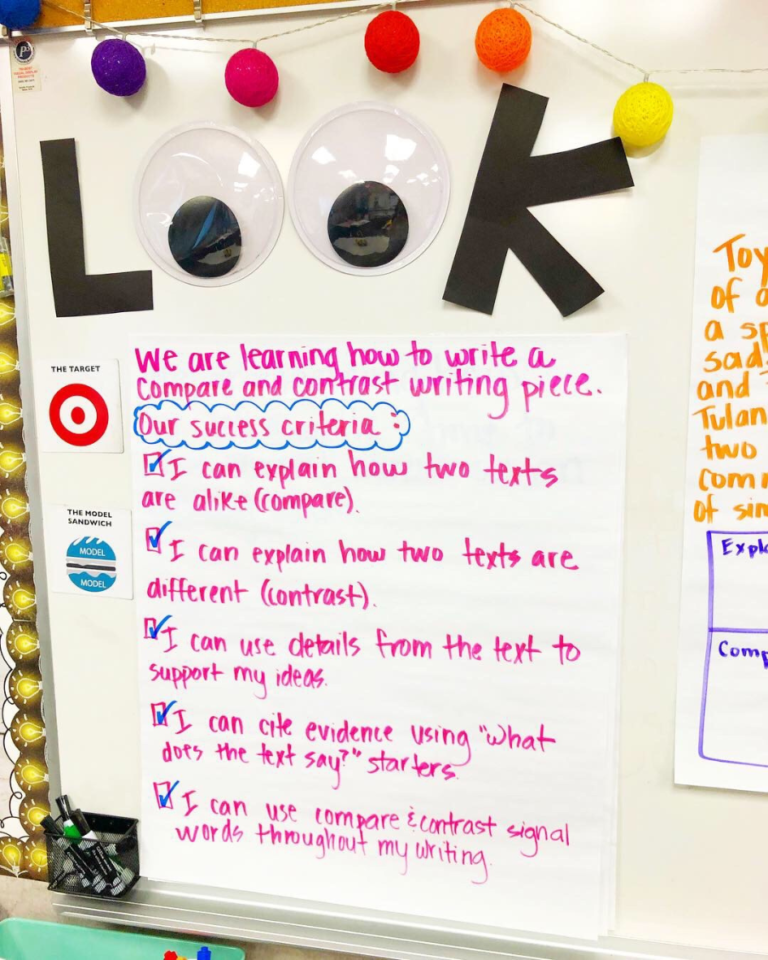 LOOK
THE TARGET
We are learning how to write a
compare and contrast writing piece.
Our success criteria:
I can explain how two texts
are alike (compare).
THE MODEL
SANDWICH
MODEL
MODEL
I can explain how two texts are
different (contrast).
I can use details from the text to
support my ideas.
I can cite evidence using "what
does the text say?" starters.
I can use compare & contrast signal
words throughout my writing.
Toy
of a
a sp
sad
and
Tulan
two
comm
of sim
Expl
Comp